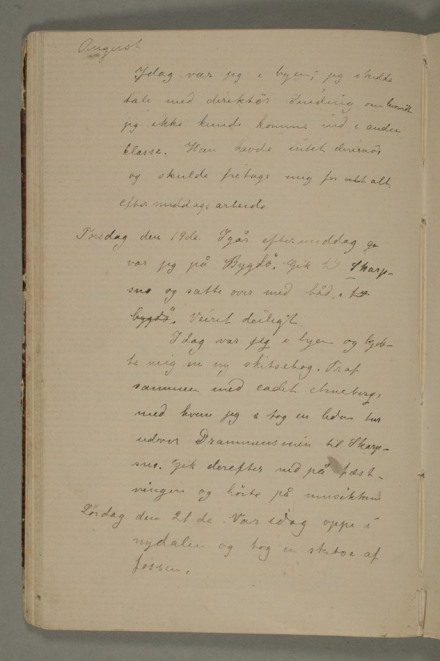 August
Idag var jeg i byen; jeg skulde
tale med direktör om
jeg ikke kunde komme ind i anden
klasse. Han havde intet derimod
og skulde fritage mig for alt
eftermiddags arbeide
Torsdag den 19de. Igår eftermiddag
var jeg på Bygdö. Gik til Skarp-
sno og satte over med båd, til
bygdö. Veiret deiligt.
Idag var jeg i byen og kjøb-
te mig en ny skitsebog. Traf
sammen med cadet
med hvem jeg tog en liden tur
udover Drammensveien til Skarp-
sno. Gik derefter ned på fæst-
ningen og hörte på musikken
Lördag den 21de. Var idag oppe i
nydalen og tog en skitse af
fossen.